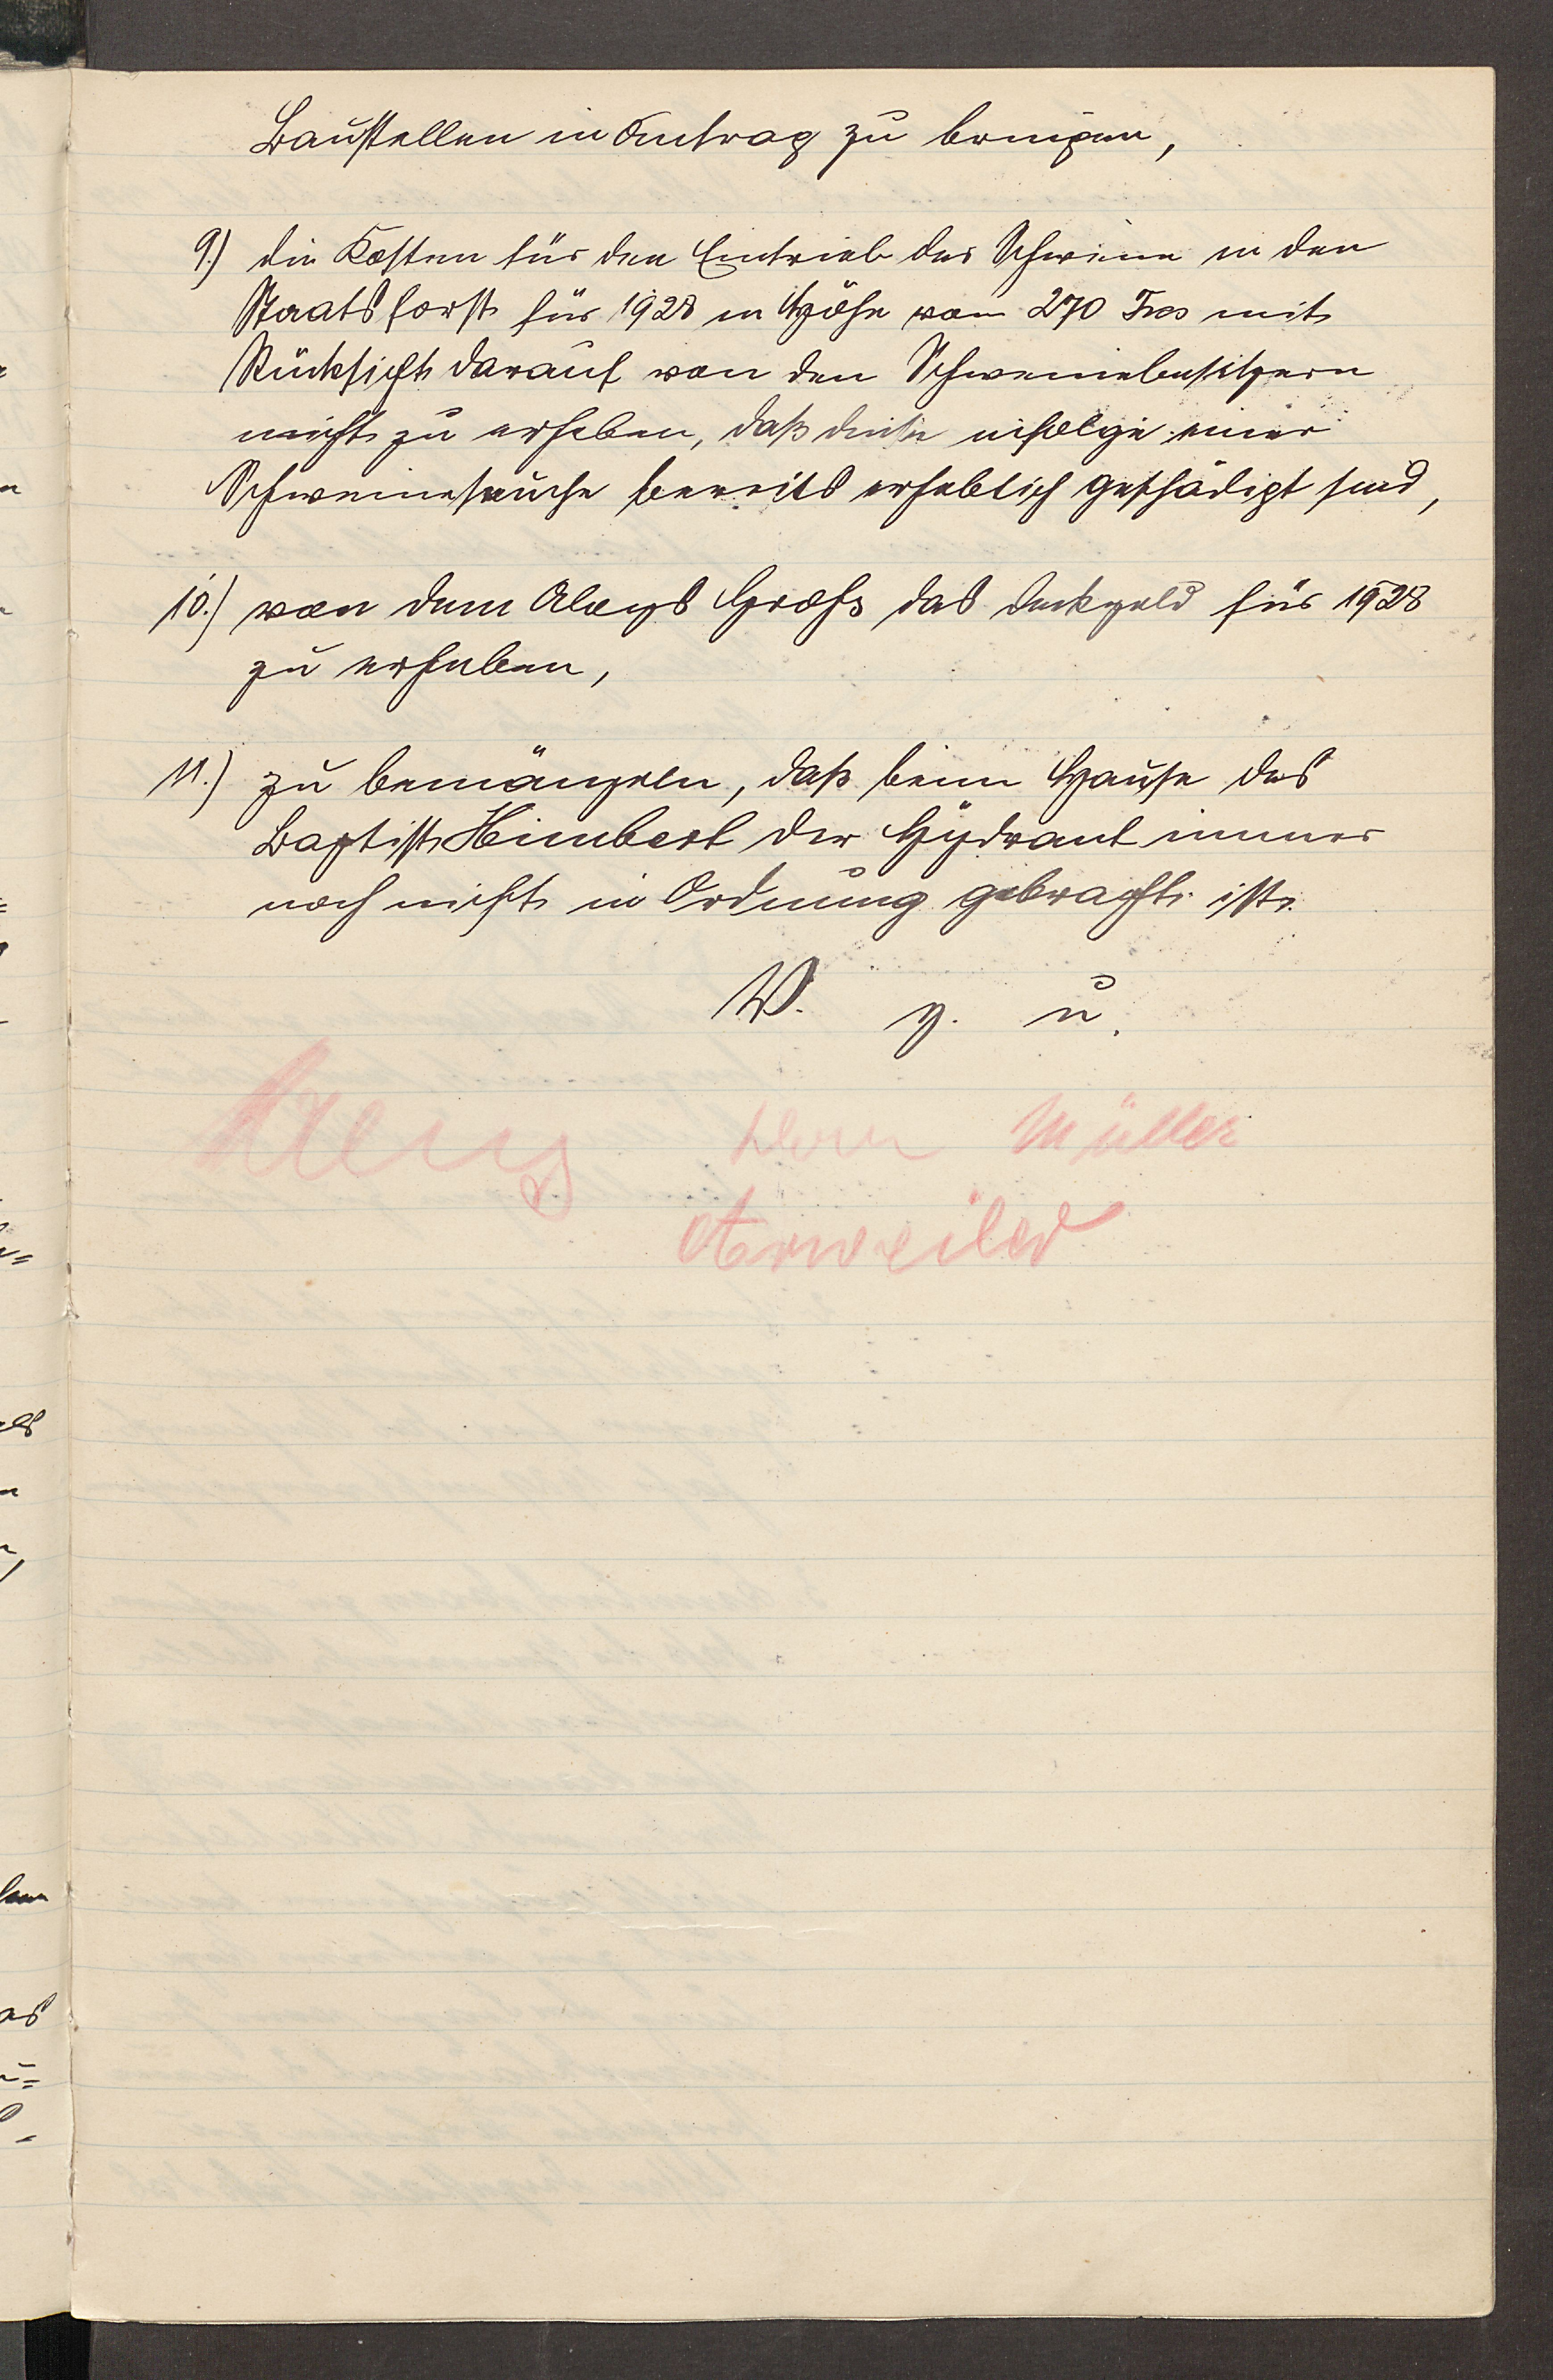 Baustellen in Antrag zu bringen,
9.) die Kosten für den Eintrieb der Schweine in den
Staatsforst für 1928 in Höhe von 270 Frcs mit
Rücksicht darauf von den Schweinebesitzern
nicht zu erheben, daß diese infolge einer
Schweineseuche bereits erheblich geschädigt sind,
10.) von dem Aloys Groß das Deckgeld für 1928
zu erheben,
11.) zu bemängeln, daß beim Hause des
Baptist Himbert der Hydrant immer
noch nicht in Ordnung gebracht ist.
V. g. u.
Müller
Arweiler